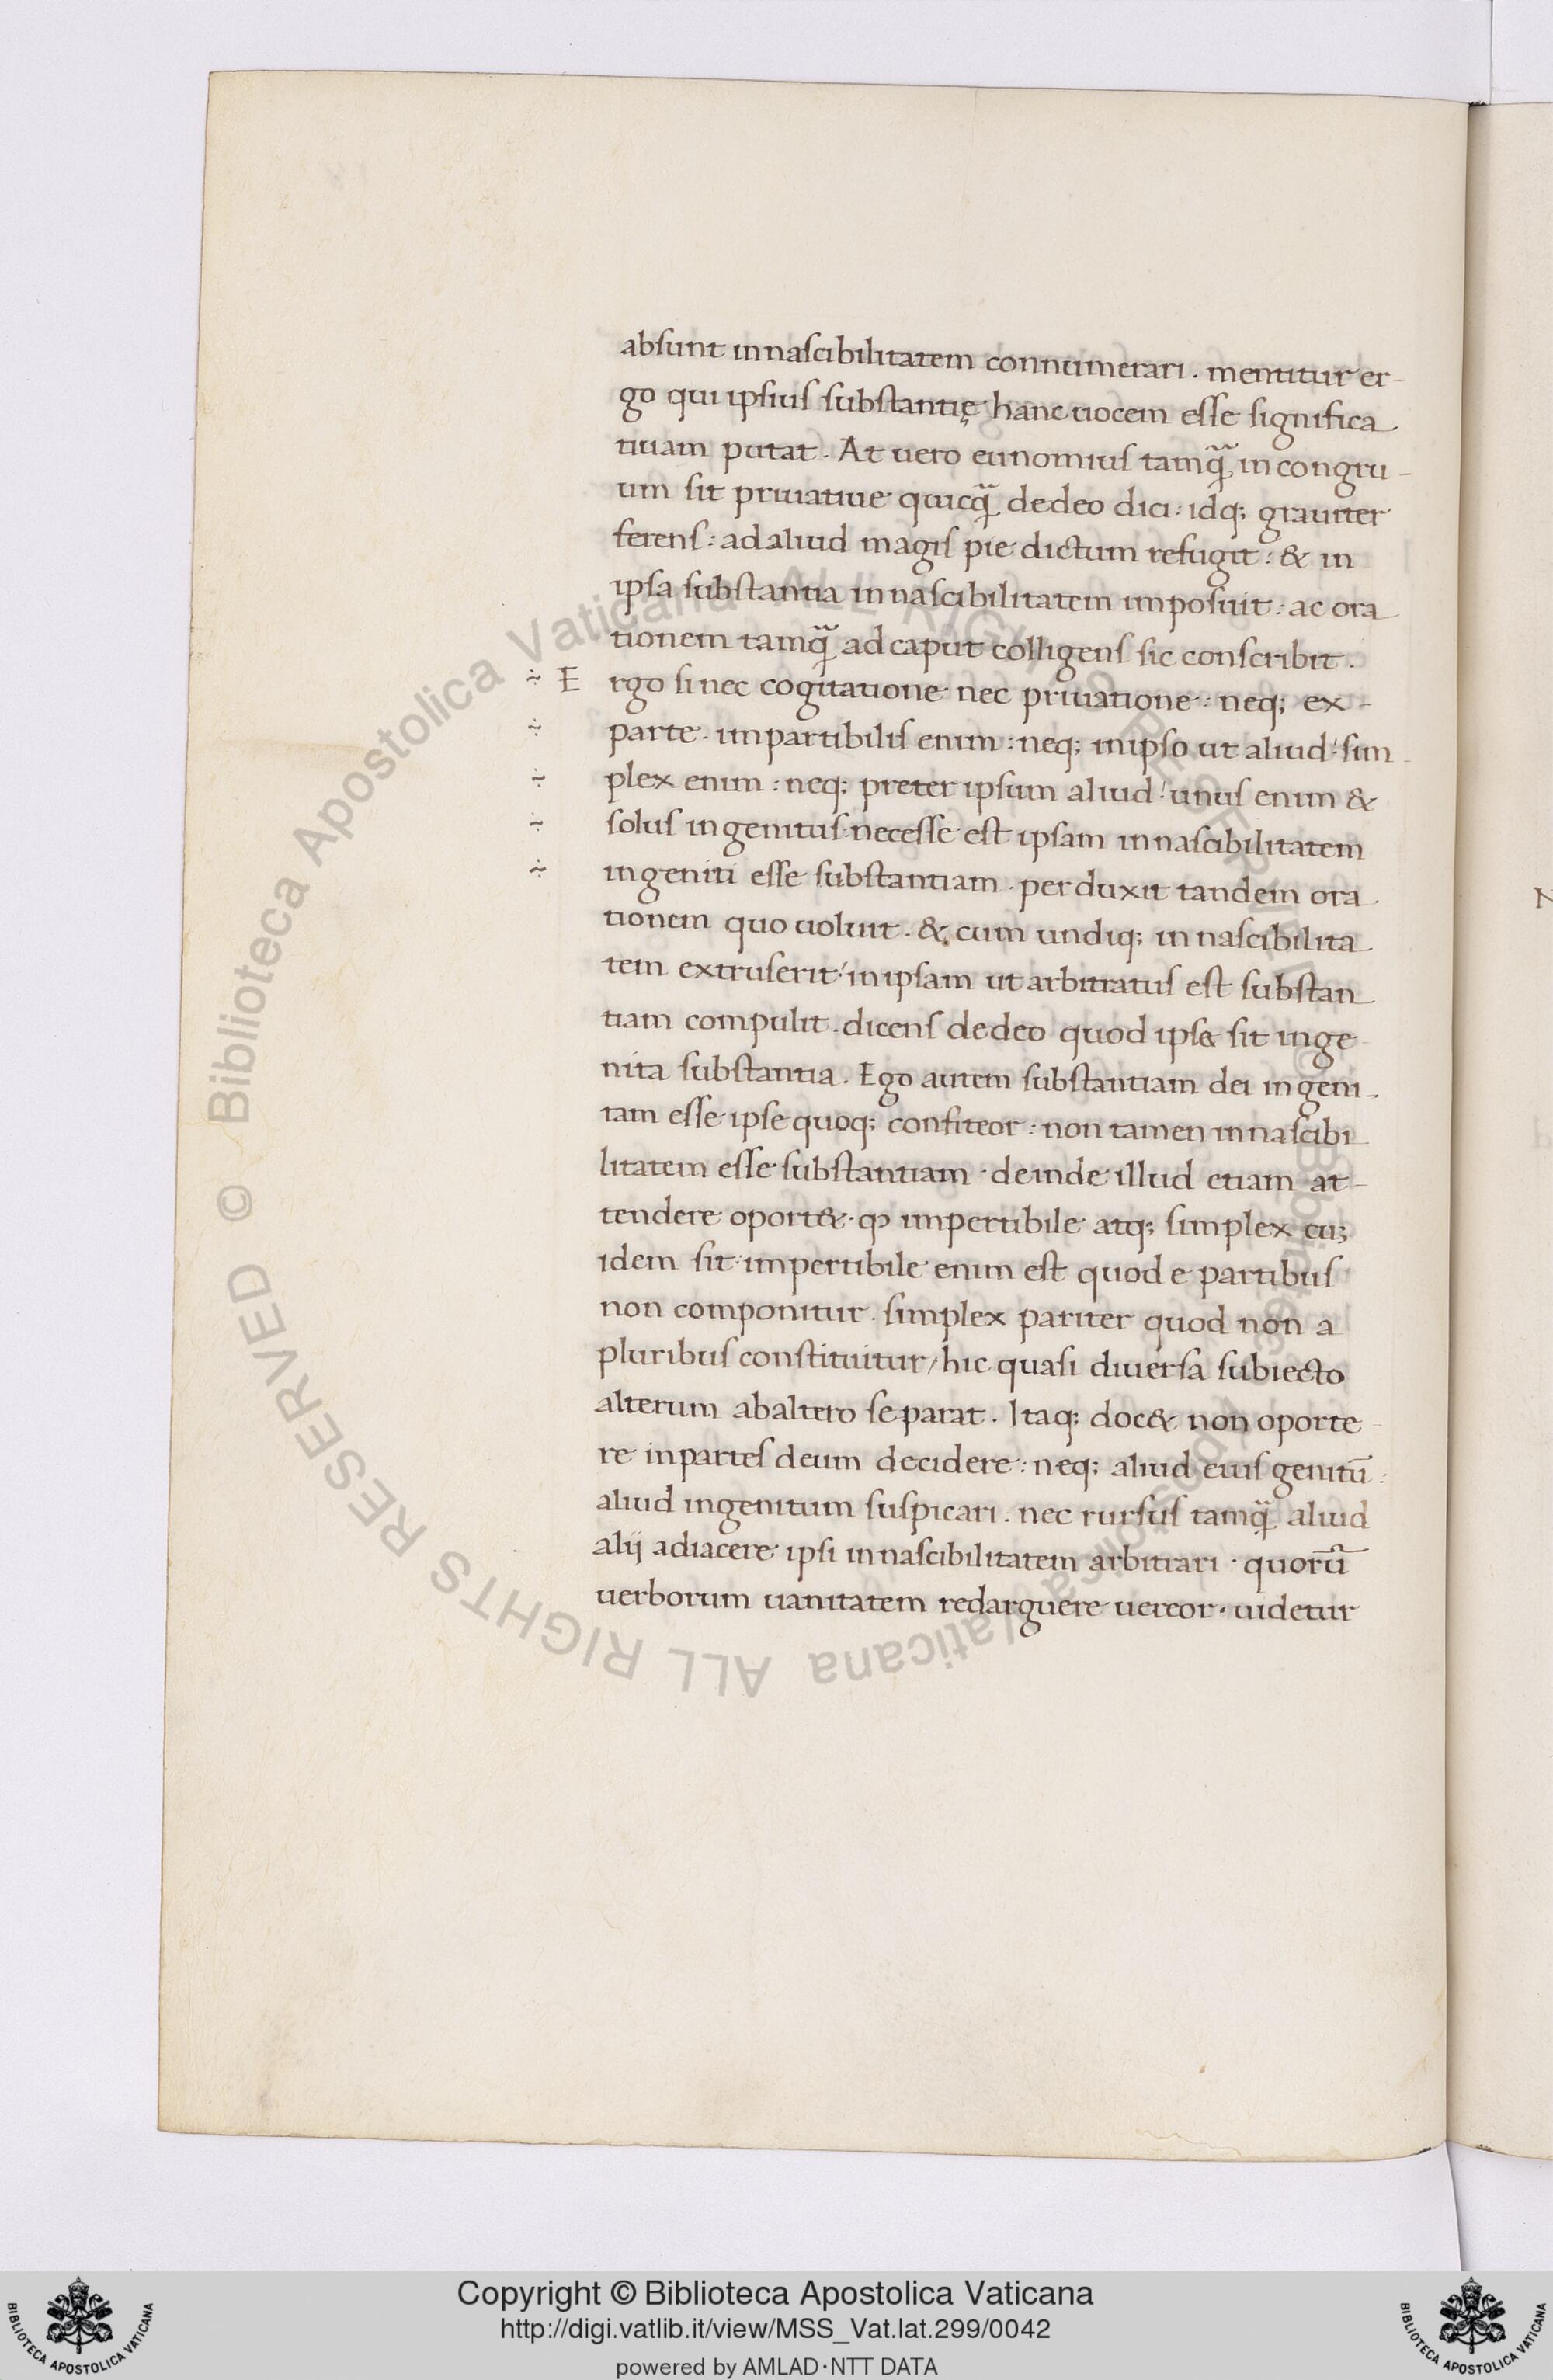 absunt innascibilitatem connumerari. mentitur er-
go qui ipsius substantię hanc uocem esse significa
tiuam putat. At uero eunomius tamq̃ incongru-
um sit priuatiue quicq̃ de deo dici: idq; grauiter
ferens: ad aliud magis pie dictum refugit: & in
ipsa substantia innascibilitatem imposuit: ac ora
tionem tamq̃ ad caput colligens sic conscribit.
Ergo si nec cogitatione nec priuatione: neq; ex-
parte. impartibilis enim: neq; in ipso ut aliud! sim
plex enim: neq; preter ipsum aliud! unus enim &
solus ingenitus necesse est ipsam innascibilitatem
ingeniti esse substantiam. perduxit tandem ora
tionem quo uoluit. & cum undiq; innascibilita
tem extruserit! in ipsam ut arbitratus est substan
tiam compulit. dicens de deo quod ipsa sit inge
nita substantia. Ego autem substantiam dei ingeni-
tam esse ipse quoq; confiteor: non tamen innascibi
litatem esse substantiam. deinde illud etiam at-
tendere oport&. ꝙ impertibile atq; simplex cu;
idem sit: impertibile enim est quod e partibus
non componitur. simplex pariter quod non a
pluribus constituitur/ hic quasi diuersa subiecto
alterum ab altero separat. Itaq; doc& non oporte-
re in partes deum decidere: neq; aliud eius genitū:
aliud ingenitum suspicari. nec rursus tamq̃ aliud
alij adiacere ipsi innascibilitatem arbitrari. quorū
uerborum uanitatem redarguere uereor. uidetur
© Biblioteca Apostolica Vaticana ALL RIGHTS RESERVED
© Biblioteca Apostolica Vaticana ALL RIGHTS RESERVED
BIBLIOTECA APOSTOLICA VATICANA
Copyright © Biblioteca Apostolica Vaticana
http://digi.vatlib.it/view/MSS_Vat.lat.299/0042
powered by AMLAD·NTT DATA
BIBLIOTECA APOSTOLICA VATICANA